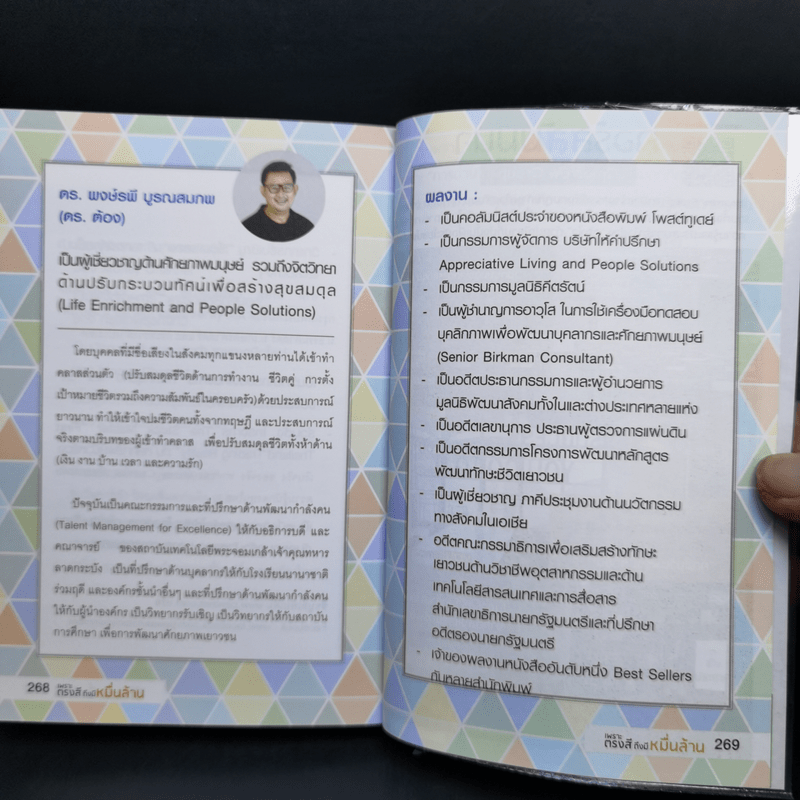 ดร. พงษ์รพี บูรณสมภพ
(ดร. ต้อง)
เป็นผู้เชี่ยวชาญด้านศักยภาพมนุษย์ รวมถึงจิตวิทยา
ด้านปรับกระบวนทัศน์เพื่อสร้างสุขสมดุล
(Life Enrichment and People Solutions)
โดยบุคคลที่มีชื่อเสียงในสังคมทุกแขนงหลายท่านได้เข้าทำ
คลาสส่วนตัว (ปรับสมดุลชีวิตด้านการทำงาน ชีวิตคู่ การตั้ง
เป้าหมายชีวิตรวมถึงความสัมพันธ์ในครอบครัว)ด้วยประสบการณ์
ยาวนาน ทำให้เข้าใจปมชีวิตคนทั้งจากทฤษฎี และประสบการณ์
จริงตามบริบทของผู้เข้าทำคลาส เพื่อปรับสมดุลชีวิตทั้งห้าด้าน
(เงิน งาน บ้าน เวลา และความรัก)
ปัจจุบันเป็นคณะกรรมการและที่ปรึกษาด้านพัฒนากำลังคน
(Talent Management for Excellence) ให้กับอธิการบดี และ
คณาจารย์ ของสถาบันเทคโนโลยีพระจอมเกล้าเจ้าคุณทหาร
ลาดกระบัง เป็นที่ปรึกษาด้านบุคลากรให้กับโรงเรียนนานาชาติ
ร่วมฤดี และองค์กรชั้นนำอื่นๆ และที่ปรึกษาด้านพัฒนากำลังคน
ให้กับผู้นำองค์กร เป็นวิทยากรรับเชิญ เป็นวิทยากรให้กับสถาบัน
การศึกษา เพื่อการพัฒนาศักยภาพเยาวชน
268 เพราะตรงสี ถึงมี หมื่นล้าน
ผลงาน :
- เป็นคอลัมนิสต์ประจำของหนังสือพิมพ์ โพสต์ทูเดย์
- เป็นกรรมการผู้จัดการ บริษัทให้คำปรึกษา
Appreciative Living and People Solutions
- เป็นกรรมการมูลนิธิคีตรัตน์
- เป็นผู้ชำนาญการอาวุโส ในการใช้เครื่องมือทดสอบ
บุคลิกภาพเพื่อพัฒนาบุคลากรและศักยภาพมนุษย์
(Senior Birkman Consultant)
- เป็นอดีตประธานกรรมการและผู้อำนวยการ
มูลนิธิพัฒนาสังคมทั้งในและต่างประเทศหลายแห่ง
- เป็นอดีตเลขานุการ ประธานผู้ตรวจการแผ่นดิน
- เป็นอดีตกรรมการโครงการพัฒนาหลักสูตร
พัฒนาทักษะชีวิตเยาวชน
- เป็นผู้เชี่ยวชาญ ภาคีประชุมงานด้านนวัตกรรม
ทางสังคมในเอเชีย
- อดีตคณะกรรมาธิการเพื่อเสริมสร้างทักษะ
เยาวชนด้านวิชาชีพอุตสาหกรรมและด้าน
เทคโนโลยีสารสนเทศและการสื่อสาร
สำนักเลขาธิการนายกรัฐมนตรีและที่ปรึกษา
อดีตรองนายกรัฐมนตรี
- เจ้าของผลงานหนังสืออันดับหนึ่ง Best Sellers
กับหลายสำนักพิมพ์
เพราะตรงสี ถึงมี หมื่นล้าน 269